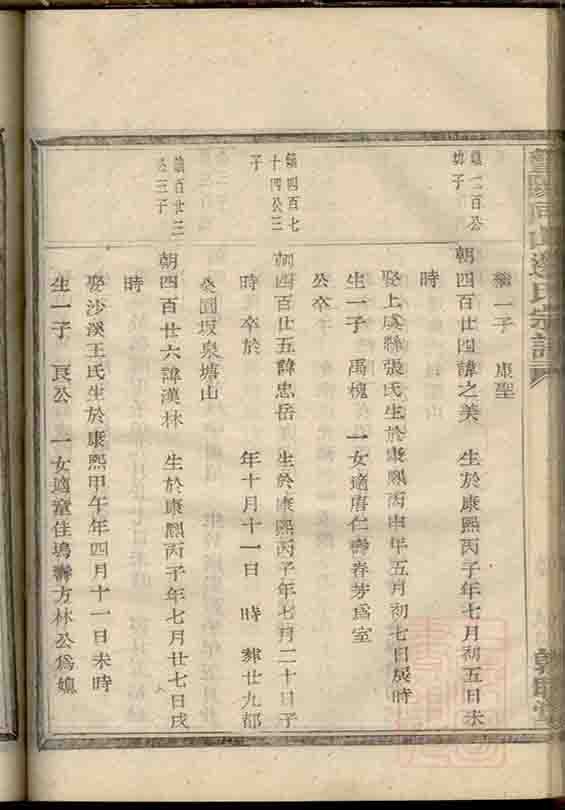 暨陽同山邊氏宗譜
繼一子 康聖
鎮一二百公
幼子
朝四百廿四諱之美 生於康熙丙子年七月初五日未
時
娶上虞縣張氏生於康熙丙申年五月初七日辰時
生一子 禹槐 一女適唐仁壽春芳爲室
公卒
鎮四百七
十四公三
子
朝四百廿五諱忠岳 生於康熙丙子年七月二十日子
時 卒於 年十月十一日 時 葬廿九都
桑園坂泉塘山
鎮百廿三
公三子
朝四百廿六諱漢林 生於康熙丙子年七月廿七日戌
時
娶沙溪王氏生於康熙甲午年四月十一日未時
生一子 良公 一女適童佳塢壽方林公爲媳